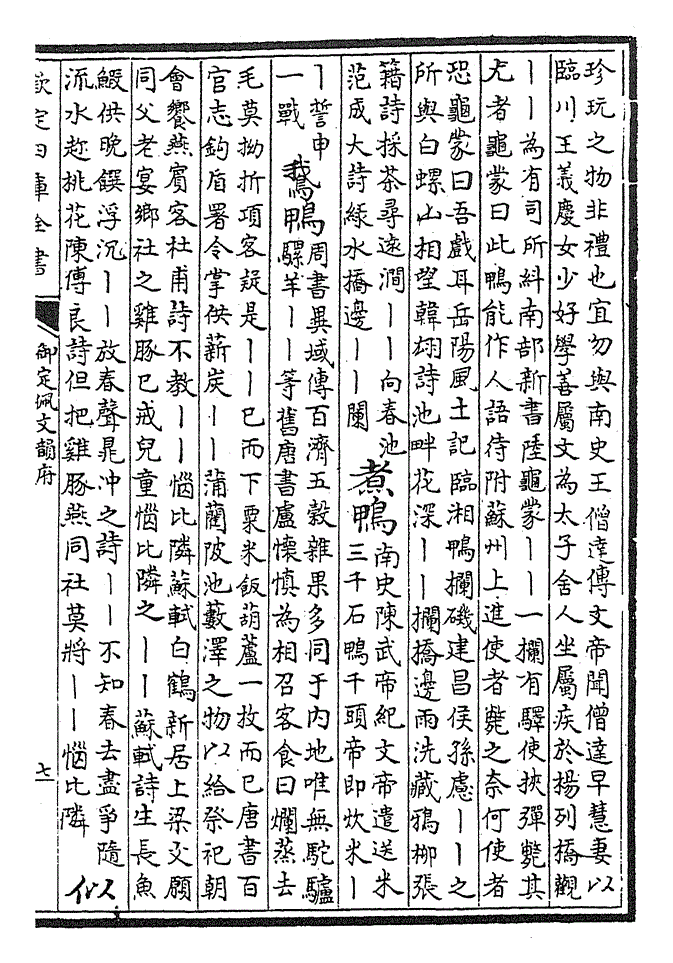 珍玩之物非禮也宜勿與南史王僧達傳文帝聞僧達早慧妻以
臨川王義慶女少好學善屬文為太子舍人坐屬疾於揚列橋觀
丨丨為有司所糾南部新書陸龜蒙丨丨一欄有驛使挾彈斃其
尤者龜蒙曰此鴨能作人語待附蘇州上進使者斃之奈何使者
恐龜蒙曰吾戲耳岳陽風土記臨湘鴨欄磯建昌侯孫慮丨丨之
所與白螺山相望韓翃詩池畔花深丨丨欄橋邊雨洗藏鴉柳張
籍詩採茶尋遠澗丨丨向春池
范成大詩緑水橋邊丨丨闌
煮鴨
南史陳武帝紀文帝遣送米
三千石鴨千頭帝即炊米丨
丨誓申
一戰
鵝鴨
周書異域傳百濟五穀雜果多同于内地唯無駝驢
騾羊丨丨等舊唐書盧懷慎為相召客食曰爛蒸去
毛莫拗折項客疑是丨丨已而下粟米飯葫蘆一枚而已唐書百
官志鈎盾署令掌供薪炭丨丨蒲藺陂池藪澤之物以給祭祀朝
會饗燕賓客杜甫詩不教丨丨惱比隣蘇軾白鶴新居上梁文願
同父老宴鄉社之雞豚已戒兒童惱比隣之丨丨蘇軾詩生長魚
鰕供晚饌浮沉丨丨放春聲晁沖之詩丨丨不知春去盡爭隨
流水趂桃花陳傅良詩但把雞豚燕同社莫將丨丨惱比隣
似
欽定四庫全書
御定佩文韻府
七